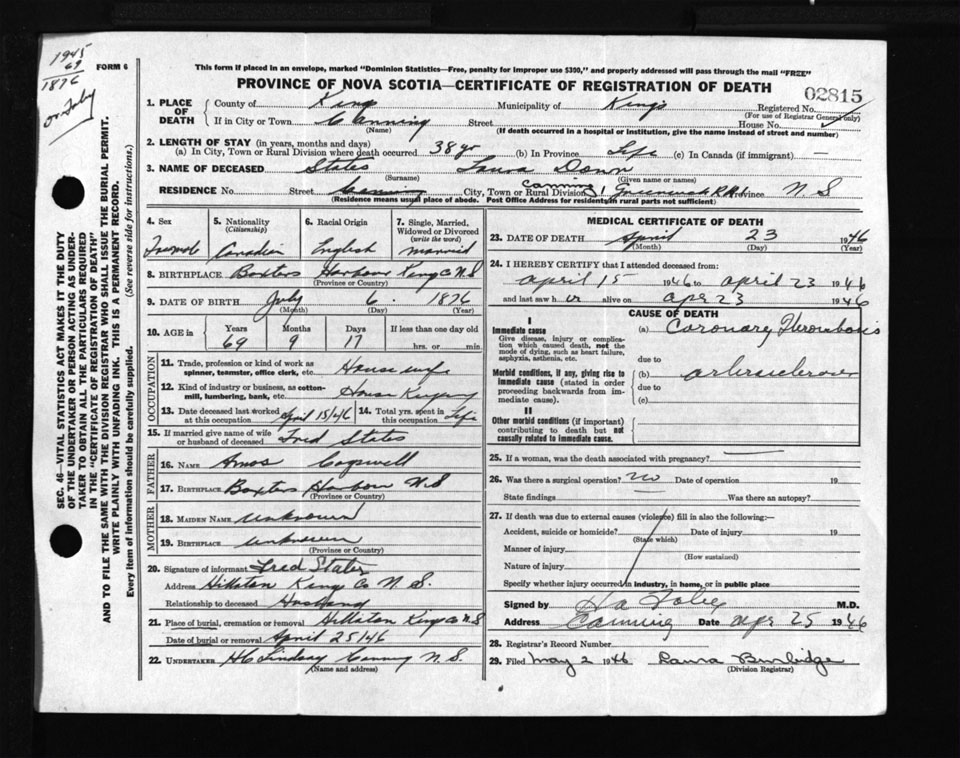 1945
69
1876
or July
FORM 6
This form if placed in an envelope, marked "Dominion Statistics—Free, penalty for improper use $300," and properly addressed will pass through the mail "FREE"
PROVINCE OF NOVA SCOTIA—CERTIFICATE OF REGISTRATION OF DEATH
02815
1. PLACE OF DEATH
County of Kings Municipality of Kings Registered No.
(For use of Registrar General only)
If in City or Town Canning Street House No.
(Name) (If death occurred in a hospital or institution, give the name instead of street and number)
2. LENGTH OF STAY (in years, months and days)
(a) In City, Town or Rural Division where death occurred 38 yr (b) In Province Life (c) In Canada (if immigrant) —
3. NAME OF DECEASED States Laura
(Surname) (Given name or names)
RESIDENCE No. Street Canning City, Town or Rural Division Canning Greenwich R.R. 1 Province N S
(Residence means usual place of abode. Post Office Address for residents in rural parts not sufficient)
4. Sex 5. Nationality (Citizenship) 6. Racial Origin 7. Single, Married, Widowed or Divorced (write the word)
Female Canadian English Married
8. BIRTHPLACE Baxters Harbour Kings Co N S
(Province or Country)
9. DATE OF BIRTH July 6. 1876
(Month) (Day) (Year)
10. AGE in Years Months Days If less than one day old
69 9 17 hrs. or min.
OCCUPATION
11. Trade, profession or kind of work as spinner, teamster, office clerk, etc. House wife
12. Kind of industry or business, as cotton-mill, lumbering, bank, etc. House Keeping
13. Date deceased last worked at this occupation April 15/46 14. Total yrs. spent in this occupation Life
15. If married give name of wife or husband of deceased Fred States
FATHER
16. NAME Amos Cogswell
17. BIRTHPLACE Baxters Harbour N S
(Province or Country)
MOTHER
18. MAIDEN NAME Unknown
19. BIRTHPLACE Unknown
(Province or Country)
20. Signature of informant Fred States
Address Hillaton Kings Co N. S.
Relationship to deceased Husband
21. Place of burial, cremation or removal Hillaton Kings Co N S
Date of burial or removal April 25/46
22. UNDERTAKER H C Lindsay Canning N. S.
(Name and address)
MEDICAL CERTIFICATE OF DEATH
23. DATE OF DEATH April 23 1946
(Month) (Day) (Year)
24. I HEREBY CERTIFY that I attended deceased from:
April 15 1946 to April 23 1946
and last saw her alive on Apr 23 1946
CAUSE OF DEATH
I
Immediate cause
Give disease, injury or complication which caused death, not the mode of dying, such as heart failure, asphyxia, asthenia, etc.
(a) Coronary Thrombosis
due to
Morbid conditions, if any, giving rise to immediate cause (stated in order proceeding backwards from immediate cause)
(b) arteriosclerosis
due to
(c)
II
Other morbid conditions (if important) contributing to death but not causally related to immediate cause.
25. If a woman, was the death associated with pregnancy? —
26. Was there a surgical operation? no Date of operation 19
State findings Was there an autopsy?
27. If death was due to external causes (violence) fill in also the following:—
Accident, suicide or homicide? Date of injury 19
(State which)
Manner of injury
(How sustained)
Nature of injury
Specify whether injury occurred in industry, in home, or in public place
Signed by M.D.
Address Canning Date Apr 25 1946
28. Registrar's Record Number
29. Filed May 2 1946 Laura Burbidge
(Division Registrar)
SEC. 46—VITAL STATISTICS ACT MAKES IT THE DUTY
OF THE UNDERTAKER OR PERSON ACTING AS UNDER-
TAKER TO OBTAIN ALL THE PARTICULARS REQUIRED
IN THE "CERTIFICATE OF REGISTRATION OF DEATH"
AND TO FILE THE SAME WITH THE DIVISION REGISTRAR WHO SHALL ISSUE THE BURIAL PERMIT.
WRITE PLAINLY WITH UNFADING INK. THIS IS A PERMANENT RECORD.
Every item of information should be carefully supplied. (See reverse side for instructions.)